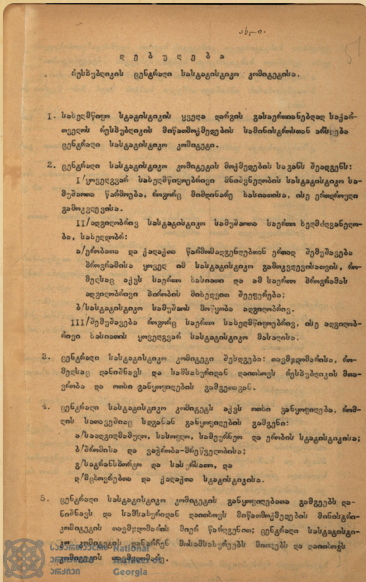 დ ე ბ უ ლ ე ბ ა
რესპუბლიკის ცენტრალი სასტატისტიკო კომიტეტისა.
1. სახელმწიფო სტატისტიკის ყველა დარგის გასაერთიანებლად საქარ-
თველოს რესპუბლიკის მიწათმოქმედების სამინისტროსთან არსდება
ცენტრალი სასტატისტიკო კომიტეტი.
2. ცენტრალი სასტატისტიკო კომიტეტის მოქმედების საგანს შეადგენს:
I/ყოველგვარ სახელმწიფოებრივი მნიშვნელობის სასტატისტიკო სა-
მუშაოთა წარმოება, როგორც მიმდინარე ხასიათისა, ისე ერთდროული
გამოკვლევისა.
II/ადგილობრივ სასტატისტიკო სამუშაოთა საერთო ხელმძღვანელო-
ბა, სახელდობრ:
ა/ერობათა და ქალაქთა წარმომადგენლებთან ერთად შემუშავება
პროგრამისა ყოველ იმ სასტატისტიკო გამოკვლევისათვის, რო-
მელსაც აქვს საერთო ხასიათი და ამ საერთო პროგრამას
ადგილობრივი პირობის მიხედვით შეეფერება;
ბ/სასტატისტიკო სამუშაოს მოწყობა ადგილობრივ.
III/შემუშავება როგორც საერთო სახელმწიფოებრივ, ისე ადგილობ-
რივი ხასიათის ყოველგვარ სასტატისტიკო მასალისა.
3. ცენტრალი სასტატისტიკო კომიტეტი შესდგება: თავმჯდომარისა, რო-
მელსაც დანიშნავს და სამსახურიდან დაითხოვს რესპუბლიკის მთა-
ვრობა და ოთხი განყოფილების გამგეთაგან.
4. ცენტრალ სასტატისტიკო კომიტეტს აქვს ოთხი განყოფილება, რომ-
ლის სათავეშიაც სდგანან განყოფილების გამგენი:
ა/საადგილმამულო, სასოფლო, სამეურნეო და ერობის სტატისტიკისა;
ბ/შრომისა და ვაჭრობა-მრეწველობისა;
გ/სატრანსპორტო და
დ/მცხოვრებთა და ქალაქთა სტატისტიკისა.
5. ცენტრალი სასტატისტიკო კომიტეტის განყოფილებათა გამგეებს და-
ნიშნავს და სამსახურიდან დაითხოვს მიწათმოქმედების მინისტრი
კომიტეტის თავმჯდომარის მიერ წარდგენით; ცენტრალი სასტატისტი-
კო კომიტეტის დანარჩენ მოსამსახურეებს მიიღებს და დაითხოვს
კომიტეტის თავმჯდომარე
National
Georgia